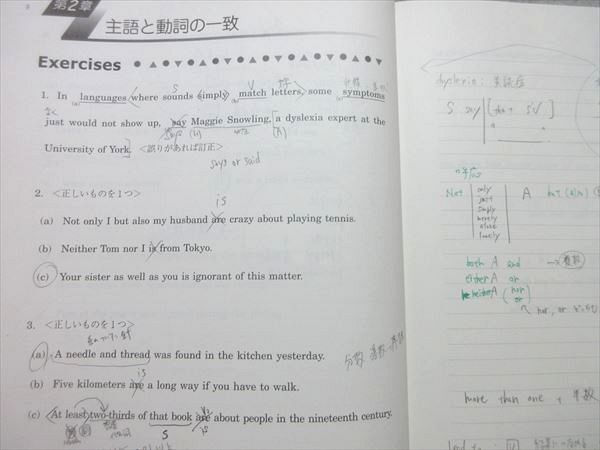 第2章
主語と動詞の一致
Exercises
S V 文字
1. In languages where sounds simply match letters, some symptoms
just would not show up, say Maggie Snowling, a dyslexia expert at the
says
University of York. <誤りがあれば訂正>
says or said
2. <正しいものを1つ>
is
(a) Not only I but also my husband are crazy about playing tennis.
(b) Neither Tom nor I is from Tokyo.
(c) Your sister as well as you is ignorant of this matter.
3. <正しいものを1つ>
(a) A needle and thread was found in the kitchen yesterday.
is
(b) Five kilometers are a long way if you have to walk.
(c) At least two-thirds of that book are about people in the nineteenth century.
S is
dyslexia:
S say
Not only A but (also)
just
simply
merely
alone
both A and → 複数
either A or
neither A nor
or
more than one + 単数